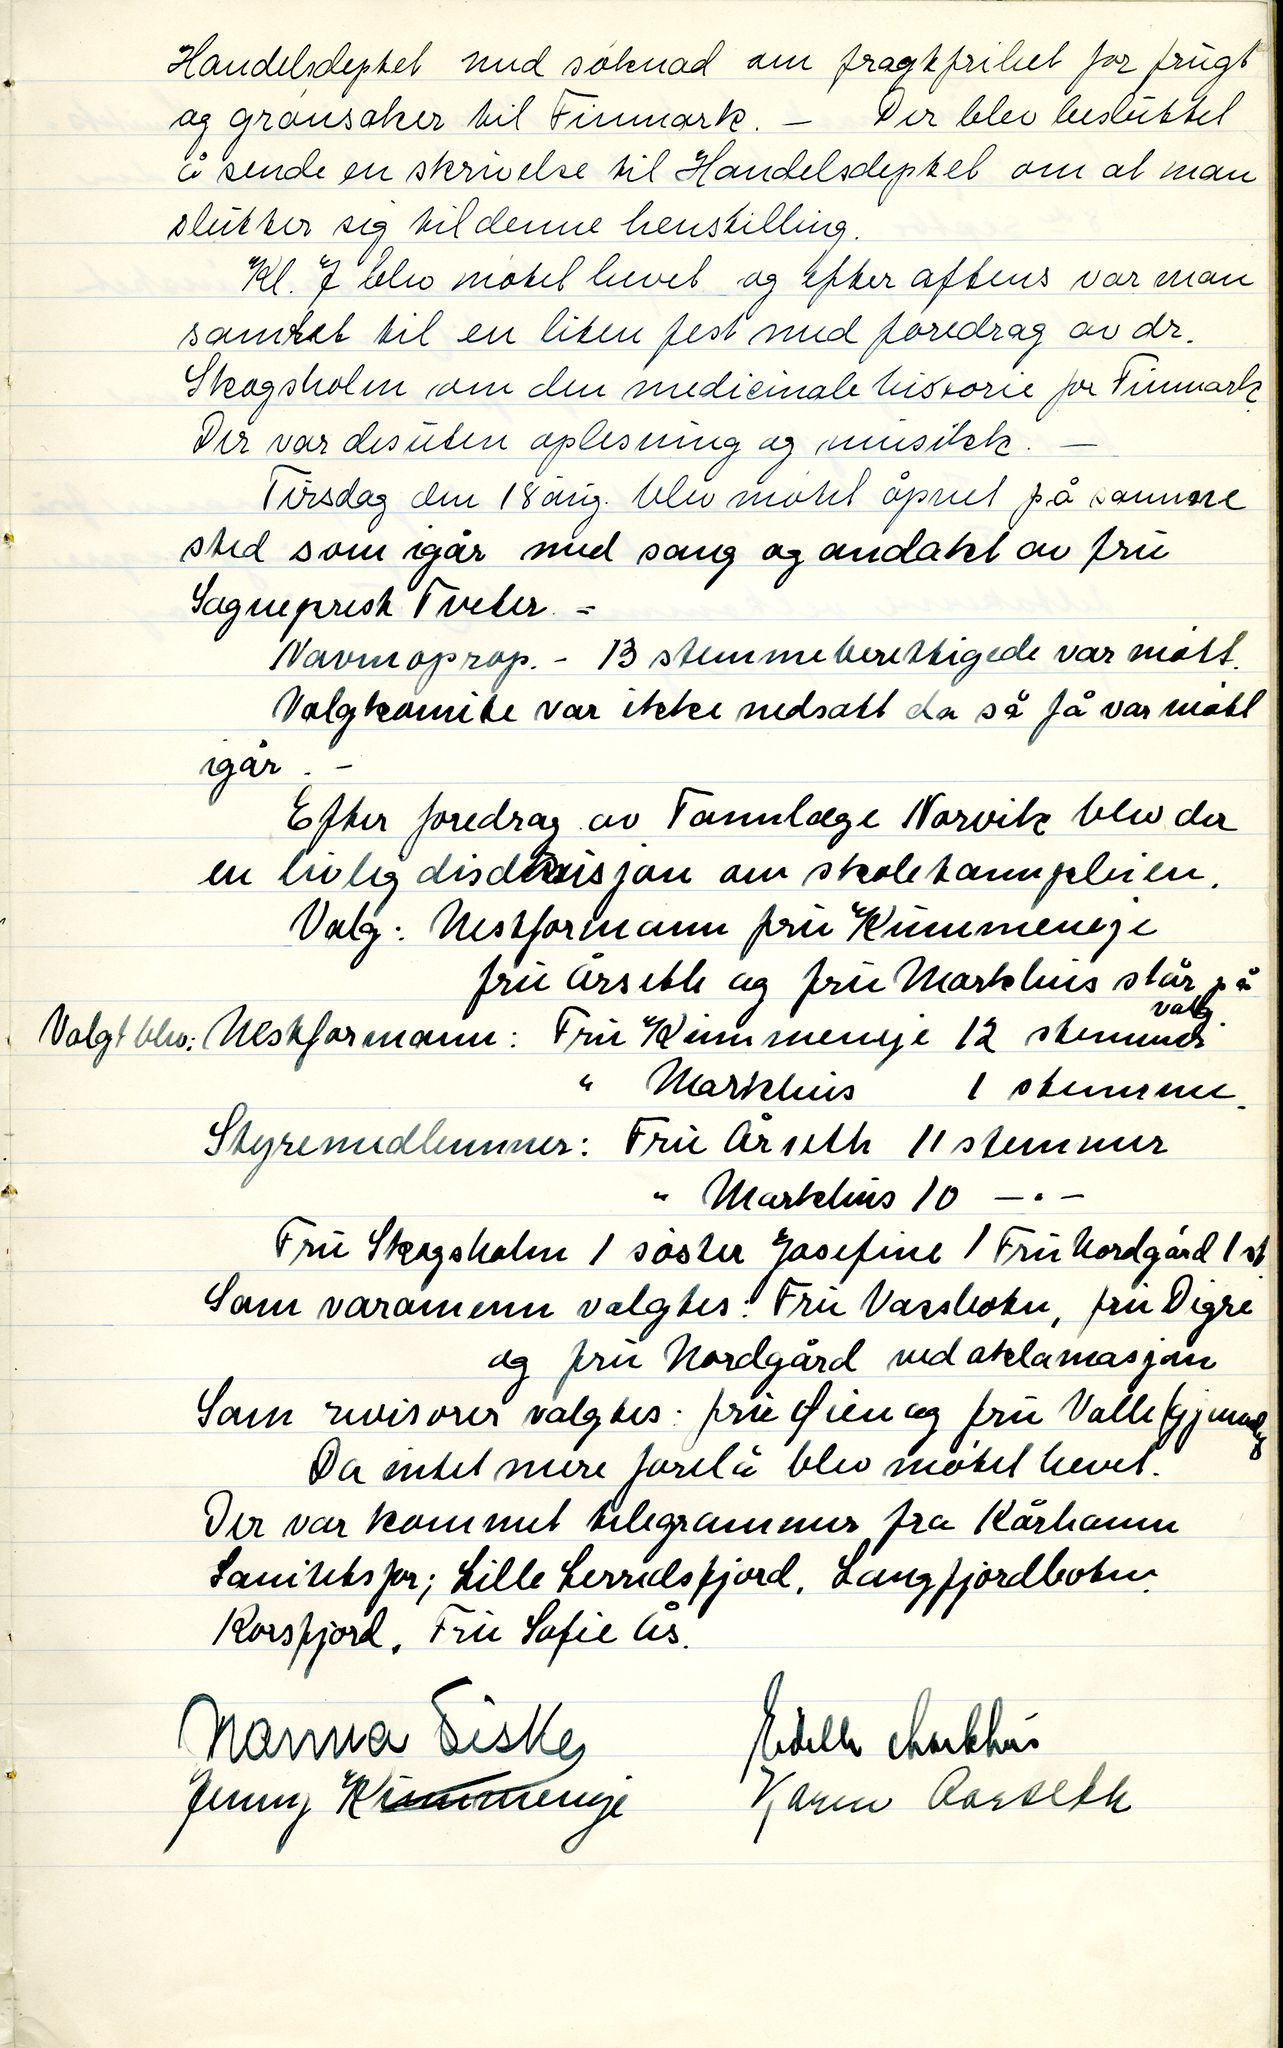 Handelsdeptet med søknad om fragtfrihet for frugt
og grønsaker til Finmark. – Der blev besluttet
å sende en skrivelse til Handelsdeptet om at man
slutter sig til denne henstilling.
Kl. 7 blev møtet hevet og efter aftens var man
samlet til en liten fest med foredrag av dr.
Skogsholm om den medicinale historie for Finmark.
Der var desuten oplesning og musikk. –
Tirsdag den 18 aug. blev møtet åpnet på samme
sted som igår med sang og andakt av fru
Sogneprest Tveter. –
Navneoprop. – 13 stemmeberettigede var møtt.
Valgkomite var ikke nedsatt da så få var møtt
igår. –
Efter foredrag av Tannlæge Norvik blev der
en livlig diskusjon om skoletannpleien.
Valg: Nestformann fru Kummeneje
fru Årseth og fru Markhus står på
valg.
Valgt blev: Nestformann: Fru Kummeneje 12 stemmer
" Markhus 1 stemme.
Styremedlemmer: Fru Årseth 11 stemmer
" Markhus 10 –"–
Fru Skogsholm 1 søster Josefine 1 Fru Nordgård 1 st
Som varamenn valgtes: Fru Vassbotn, fru Digre
og fru Nordgård ved aklamasjon
Som revisorer valgtes: fru Øien og fru Valle (gjenvalg
Da intet mere forelå blev møtet hevet.
Der var kommet telegrammer fra Kårhamn
Sanitetsfor; Lille Lerredsfjord, Langfjordbotn.
Korsfjord, Fru Sofie Ås.
Nanna Fiske Edelh Markhus
Jenny Kummeneje Karen Aarseth